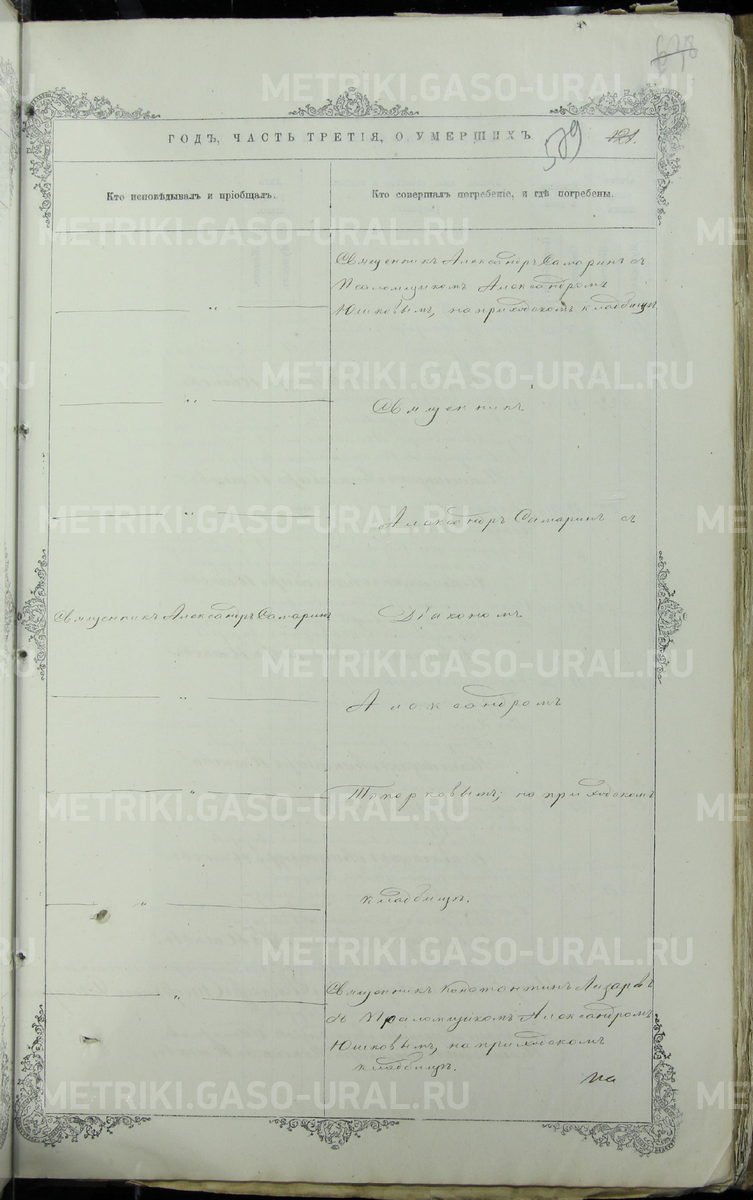 678
ГОДЪ, ЧАСТЬ ТРЕТІЯ, О УМЕРШИХЪ.
579
121.
Кто исповѣдывалъ и пріобщалъ.
Кто совершалъ погребеніе, и гдѣ погребены.
Священникъ Александръ Самаринъ съ
Псаломщикомъ Александромъ
Юшковымъ, на приходскомъ кладбищѣ.
Священникъ
Александръ Самаринъ съ
Священникъ Александръ Самаринъ
Діакономъ
Александромъ
Топорковымъ, на приходскомъ
кладбищѣ.
Священникъ Константинъ Лазаревъ
съ Псаломщикомъ Александромъ
Юшковымъ, на приходскомъ
кладбищѣ.
METRIKI.GASO-URAL.RU